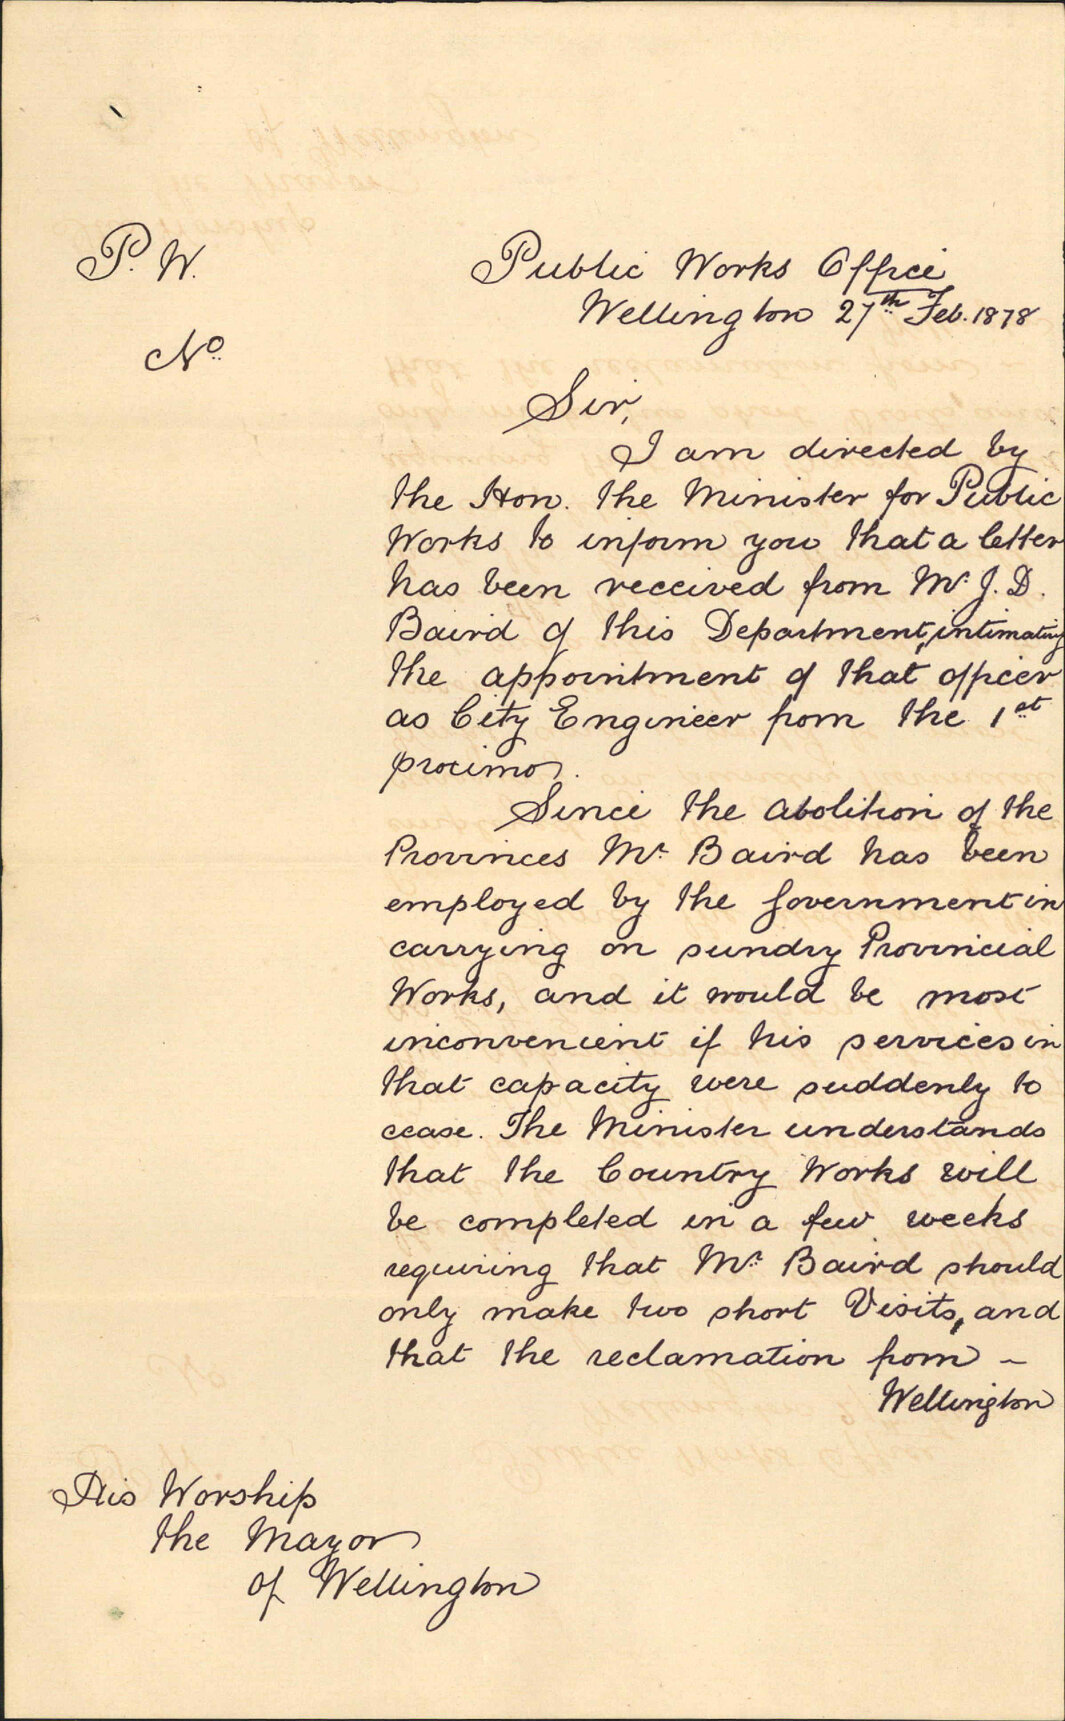 P. W.
No
Public Works Office
Wellington 27th Feb. 1878
Sir,
I am directed by
the Hon. the Minister for Public
Works to inform you that a letter
has been received from Mr. J. D.
Baird of this Department, intimating
the appointment of that officer
as City Engineer from the 1st
procimo.
Since the abolition of the
Provinces Mr. Baird has been
employed by the Government in
carrying on sundry Provincial
Works, and it would be most
inconvenient if his services in
that capacity were suddenly to
cease. The Minister understands
that the Country Works will
be completed in a few weeks
requiring that Mr. Baird should
only make two short Visits, and
that the reclamation from –
Wellington
His Worship
the Mayor
of Wellington